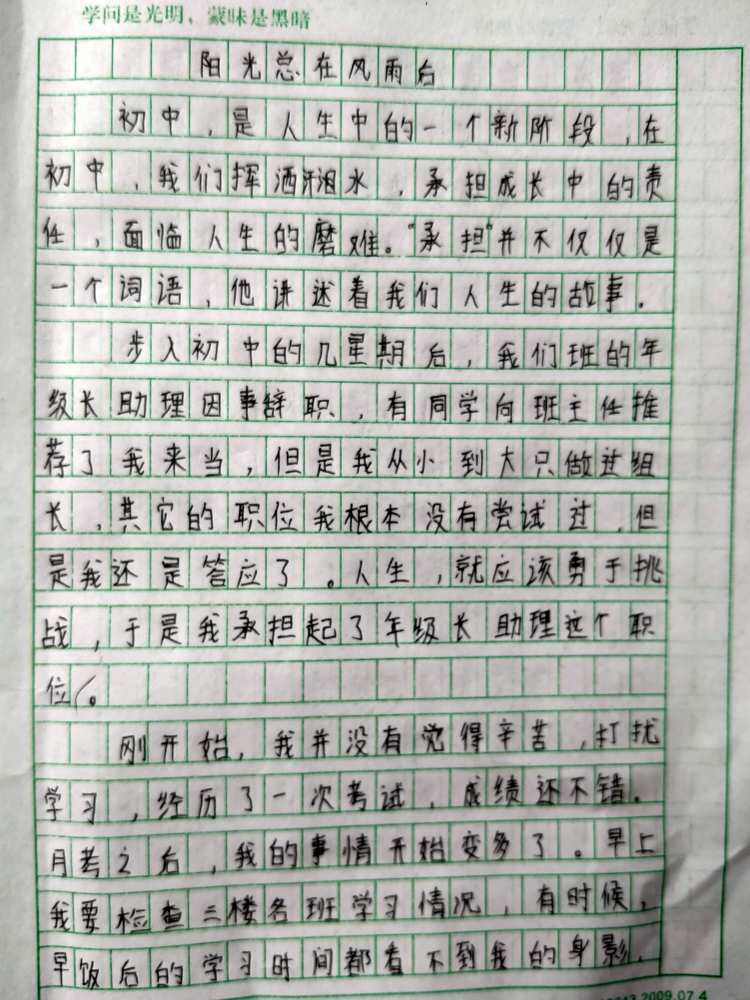 学问是光明，蒙昧是黑暗
阳光总在风雨后
初中，是人生中的一个新阶段，在
初中，我们挥洒汗泪水，承担成长中的责
任，面临人生的磨难。“承担”并不仅仅是
一个词语，他讲述着我们人生的故事。
步入初中的几星期后，我们班的年
级长助理因事辞职，有同学向班主任推
荐了我来当，但是我从小到大只做过组
长，其它的职位我根本没有尝试过，但
是我还是答应了。人生，就应该勇于挑
战，于是我承担起了年级长助理这个职
位。
刚开始，我并没有觉得辛苦，打扰
学习，经历了一次考试，成绩还不错。
月考之后，我的事情开始变多了。早上
我要检查三楼各班学习情况，有时候，
早饭后的学习时间都看不到我的身影，
2009.07.4